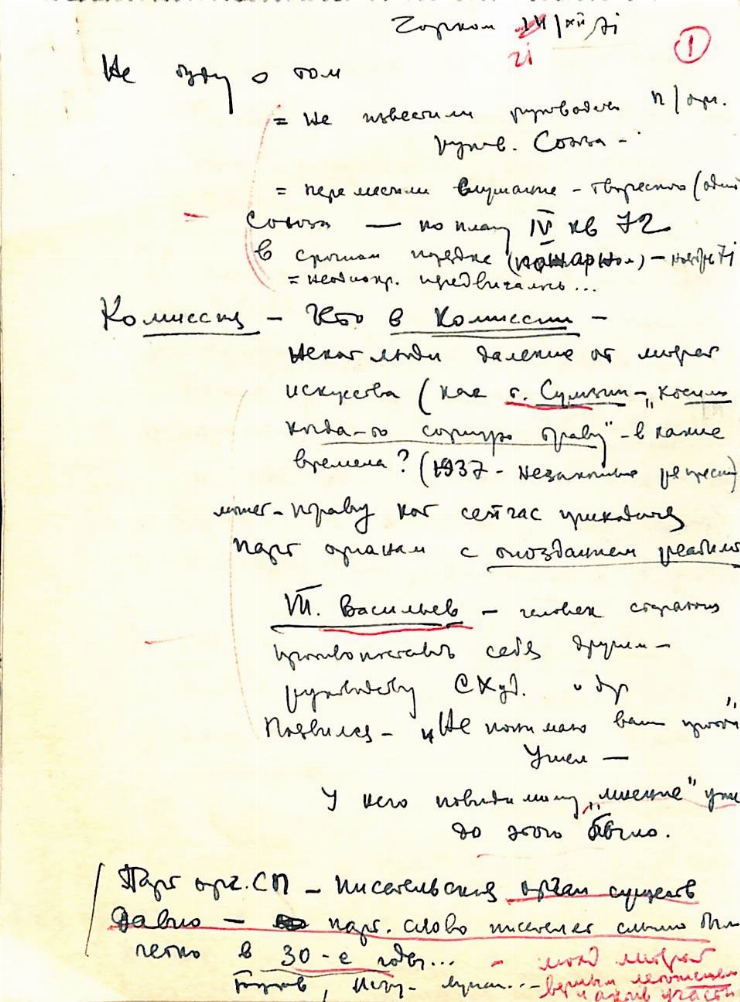 Горком 21/XII 71
1
Не буду о том
= Не известили руководство п/орг.
руков. Союза -
= переместили слушание - творческого (один
Союза — по плану IV кв 72
в срочном порядке (пожарном) - ноябрь 71
= неоднокр. передвигалось...
Комиссия - Кто в Комиссии -
Некот люди далекие от
искусства (как т. Сумкин - „косили
когда-то сорную траву" - в какие
времена? (1937 - незаконные репресси)
может - потраву кот сейчас приходится
парт органам с опозданием реабили
VII. Васильев - человек старающ
противопоставить себя другим -
руководству СХуд. и др
Появился - „Не понимаю ваш
Ушел —
У него по видимому „мнение" уже
до этого было.
Парт орг. СП - писательская орган существ
давно — парт. слово писателей слышно было
четко в 30-е годы...